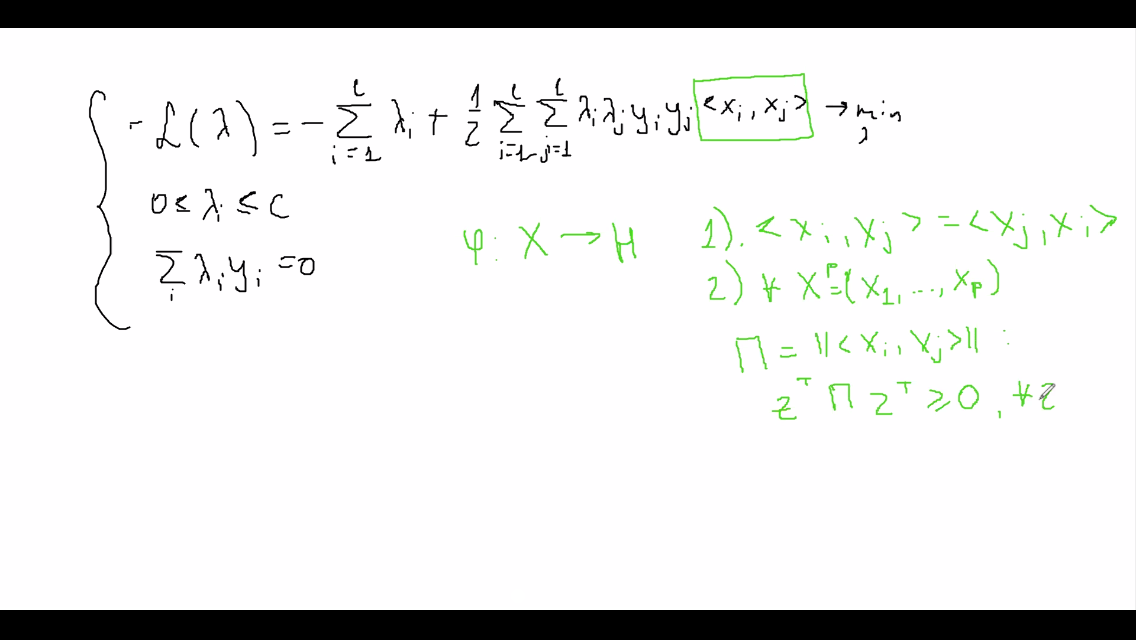 - ℒ(λ) = - ∑_{i=1}^{l} λ_i + 1/2 ∑_{i=1}^{l} ∑_{j=1}^{l} λ_i λ_j y_i y_j <x_i, x_j> → min_λ
0 ≤ λ_i ≤ C
∑_i λ_i y_i = 0
φ: X → H
1). <x_i, x_j> = <x_j, x_i>
2) ∀ X^p = (x_1, ..., x_p)
Π = ||<x_i, x_j>|| :
z^T Π z^T ≥ 0, ∀z